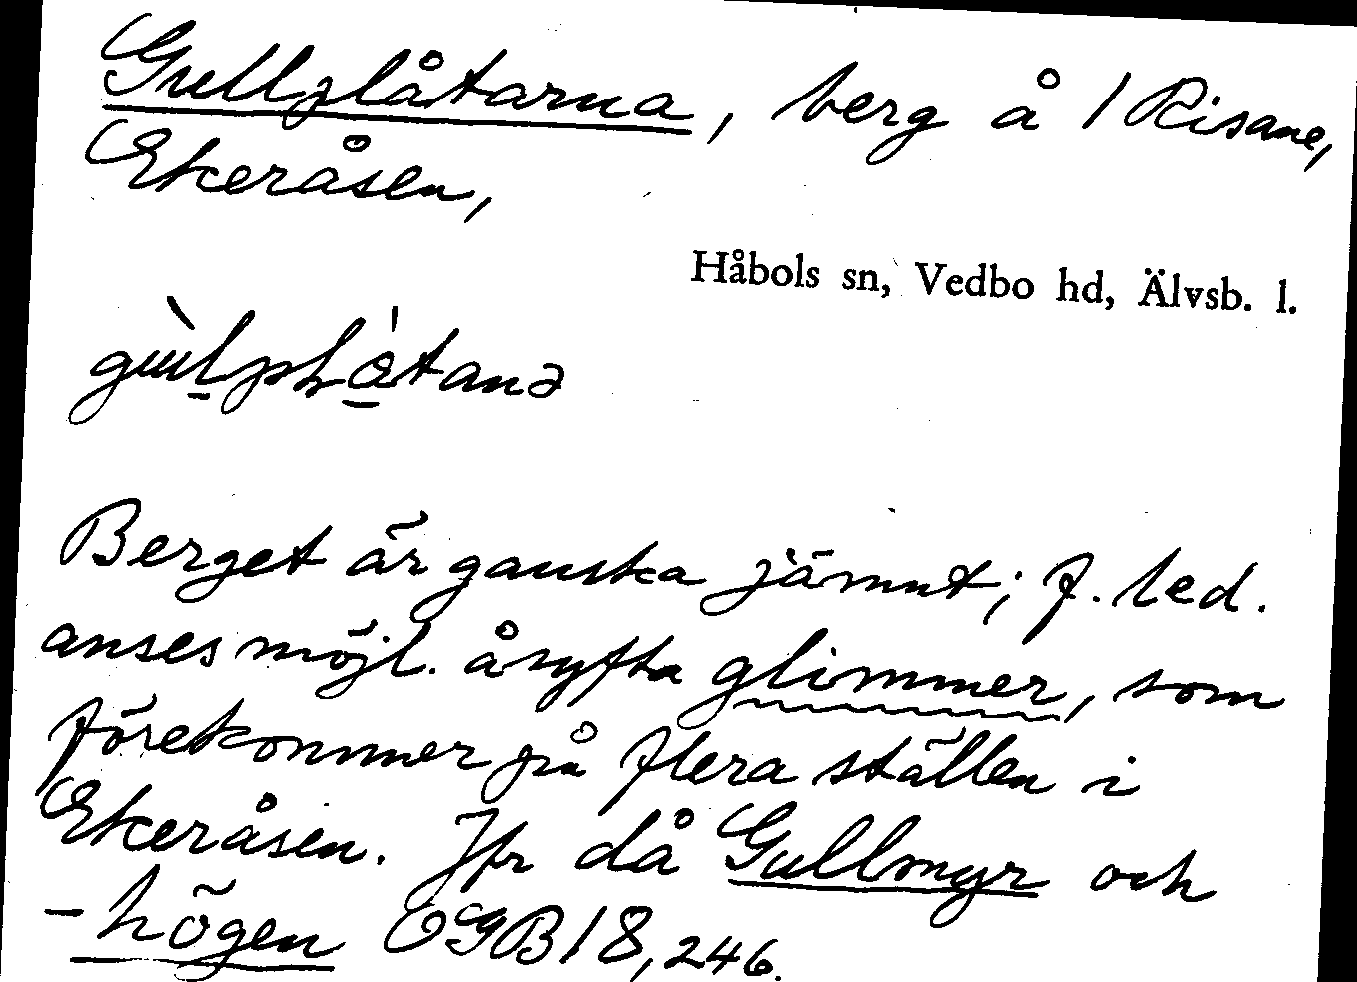 Gullplåtarna, berg å 1 Risane,
Ekeråsen,
Håbols sn, Vedbo hd, Älvsb. l.
Berget är ganska jämnt; f. led.
anses möjl. åsyfta glimmer, som
förekommer på flera ställen i
Ekeråsen. Jfr då Gullmyr och
-högen OGB 18, 246.